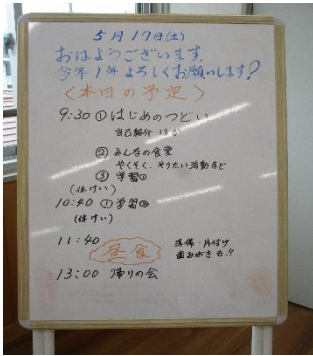 5月17日(土)
おはようございます。
今年1年よろしくお願いします!
<本日の予定>
9:30 ① はじめのつどい
自己紹介 ほか
② みんなの食堂
やくそく、やりたい活動など
③ 学習①
(休けい)
10:40 ① 学習②
(休けい)
11:40 昼食 準備・片付け
歯みがきも!!
13:00 帰りの会